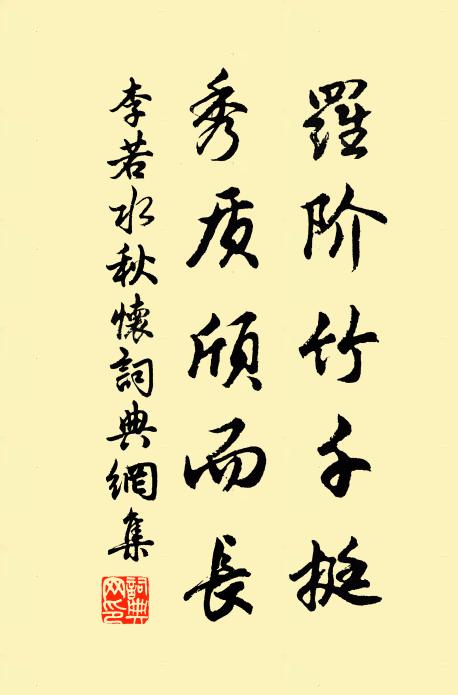 羅阶竹千挺
秀质頎而長
李若水秋懷詞典網集
詞典